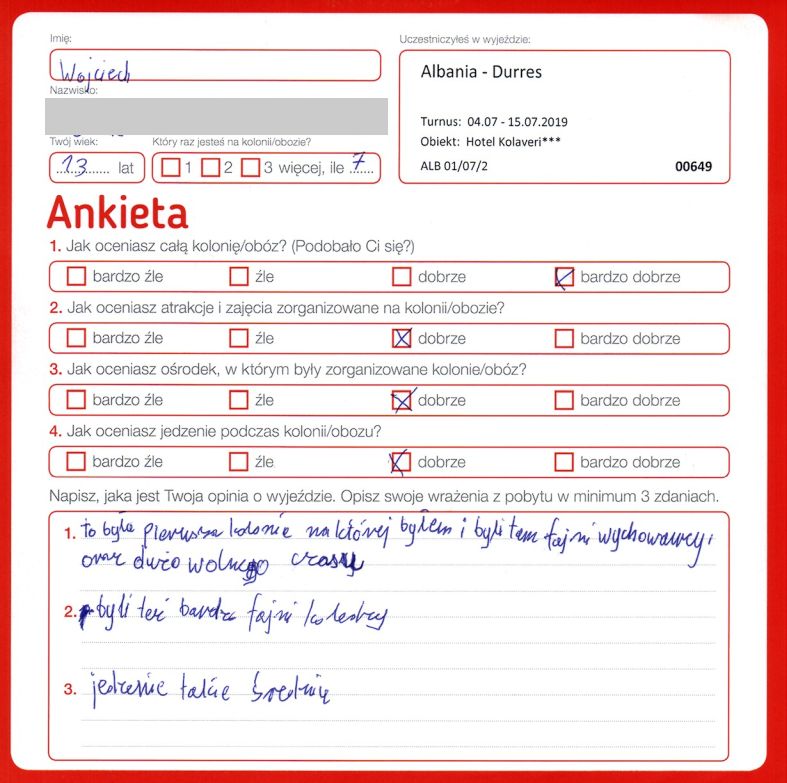 Imię:
Uczestniczyłeś w wyjeździe:
Wojciech
Albania - Durres
Nazwisko:
Turnus: 04.07 - 15.07.2019
Twój wiek:
Który raz jesteś na kolonii/obozie?
Obiekt: Hotel Kolaveri***
13 lat
1 2 3 więcej, ile 7
ALB 01/07/2
00649
Ankieta
1. Jak oceniasz całą kolonię/obóz? (Podobało Ci się?)
bardzo źle źle dobrze bardzo dobrze
2. Jak oceniasz atrakcje i zajęcia zorganizowane na kolonii/obozie?
bardzo źle źle dobrze bardzo dobrze
3. Jak oceniasz ośrodek, w którym były zorganizowane kolonie/obóz?
bardzo źle źle dobrze bardzo dobrze
4. Jak oceniasz jedzenie podczas kolonii/obozu?
bardzo źle źle dobrze bardzo dobrze
Napisz, jaka jest Twoja opinia o wyjeździe. Opisz swoje wrażenia z pobytu w minimum 3 zdaniach.
1. to była pierwsza kolonie na której byłem i byli tam fajni wychowawcy i
oraz dużo wolnego czasu
2. byli też bardzo fajni koledzy
3. jedzenie takie średnie